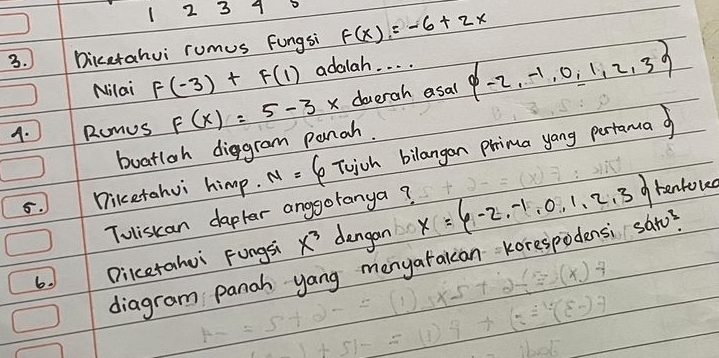 1 2 3 4 5
3. Diketahui rumus fungsi F(x) = -6 + 2x
Nilai F(-3) + F(1) adalah....
4. Rumus F(x) = 5 - 3x daerah asal {-2, -1, 0, 1, 2, 3}
buatlah diagram panah.
5. Diketahui himp. N = { Tujuh bilangan prima yang pertama }
Tuliskan daptar anggotanya ?
6. Diketahui Fungsi x³ dengan x = {-2, -1, 0, 1, 2, 3}
diagram panah yang menyatakan korespodensi satu².